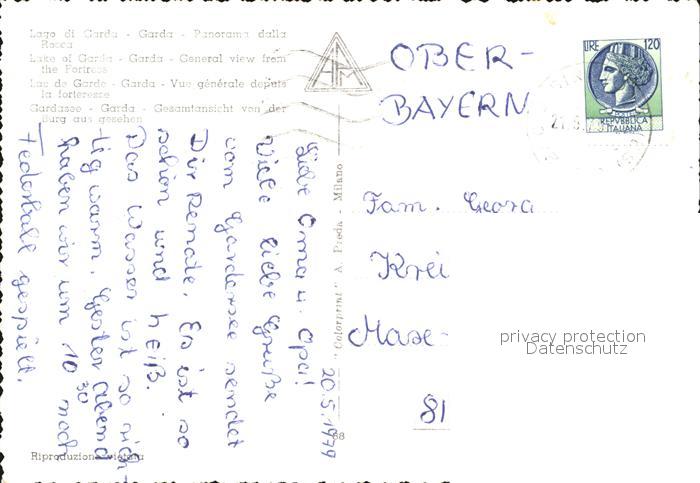 Lago di Garda - Garda - Panorama dalla
Rocca
Lake of Garda - Garda - General view from
the Fortress
Lac de Garde - Garda - Vue générale depuis
la forteresse
Gardasee - Garda - Gesamtansicht von der
Burg aus gesehen
OBER-
BAYERN
LIRE 120
REPVBBLICA
ITALIANA
20.5.1979
Liebe Oma u. Opa!
Viele liebe Grüße
vom Gardasee sendet
Dir Renate. Es ist so
schön und heiß.
Das Wasser ist so rich-
tig warm. Gestern Abend
haben wir um 10 30 noch
Federball gespielt.
"Colorprint" A. Preda - Milano
88
Fam. Georg
Krei
Mase-
81
privacy protection
Datenschutz
Riproduzione vietata